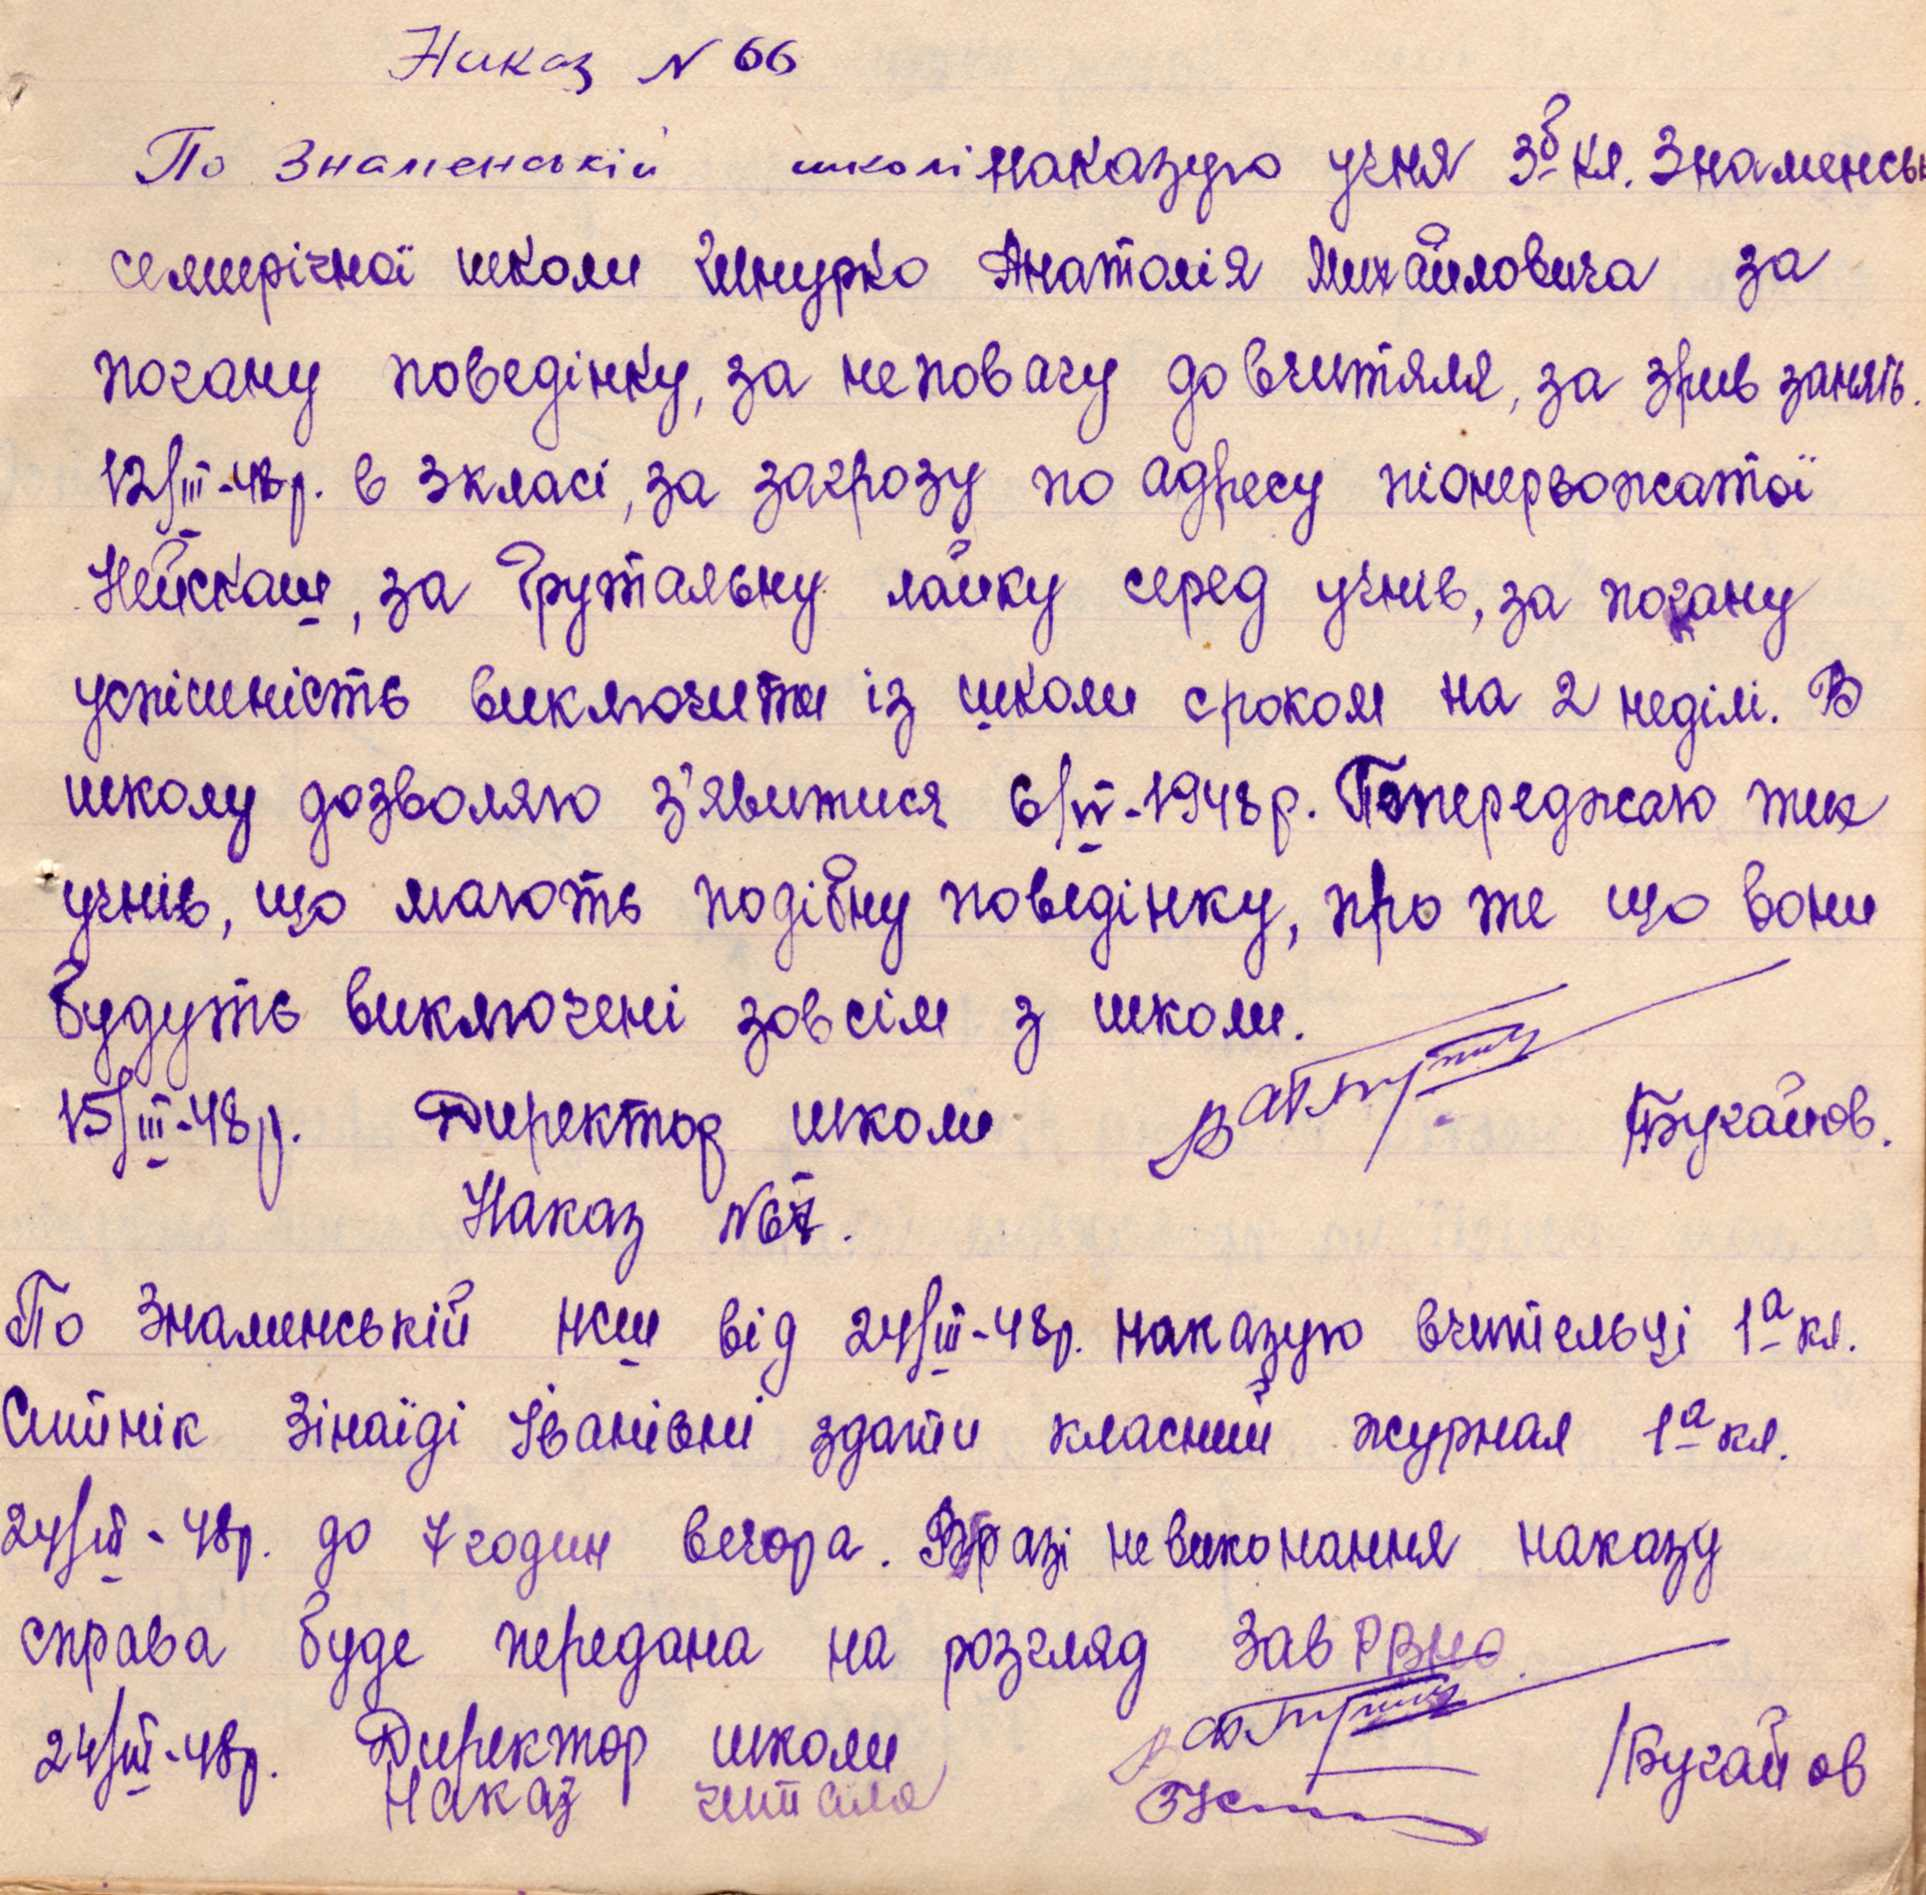 Наказ N 66
По Знаменській школі наказую учня 3б кл. Знаменсь
семирічної школи Шнурко Анатолія Михайловича за
погану поведінку, за неповагу до вчитяля, за зрив занять.
12/III-48р. в 3 класі, за загрозу по адресу піонервожатої
Нейскаш, за брутальну лайку серед учнів, за погану
успішність виключити із школи сроком на 2 неділі. В
школу дозволяю з'явитися 6/IV-1948р. Попереджаю тих
учнів, що мають подібну поведінку, про те що вони
будуть виключені зовсім з школи.
15/III-48р. Директор школи /Бугайов.
Наказ N67.
По Знаменській НСШ від 24/III-48р. наказую вчительці 1а кл.
Зінаїді Іванівні здати класний журнал 1а кл.
24/III-48р. до 7 годин вечора. В разі невиконання наказу
справа буде передана на розгляд Зав РВНО
24/III-48р. Директор школи /Бугайов
Наказ читала